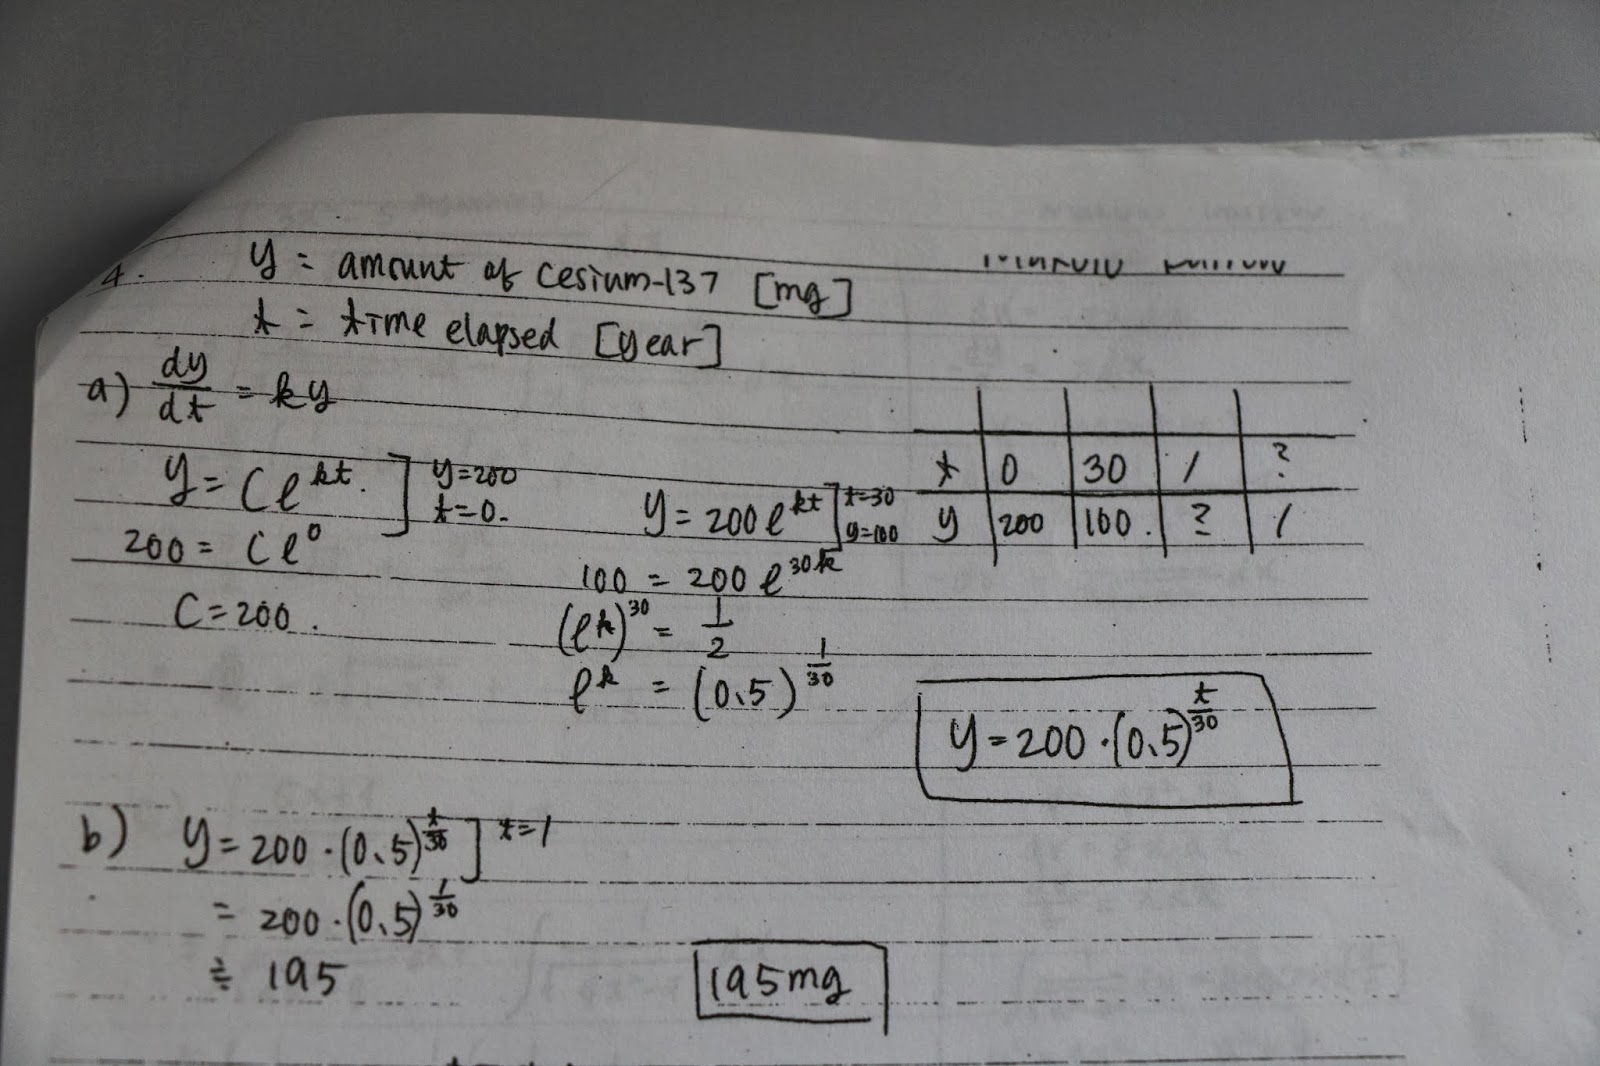 4. y = amount of cesium-137 [mg]
t = time elapsed [year]
a) dy/dt = ky
t | 0 | 30 | 1 | ?
y | 200 | 100. | ? | 1
y = Ce^kt. ] y=200 t=0.
200 = Ce^0
C = 200.
y = 200e^kt ] t=30 y=100
100 = 200e^30k
(e^k)^30 = 1/2
e^k = (0.5)^1/30
y = 200·(0.5)^t/30
b) y = 200·(0.5)^t/30 ] t=1
= 200·(0.5)^1/30
≒ 195
195mg